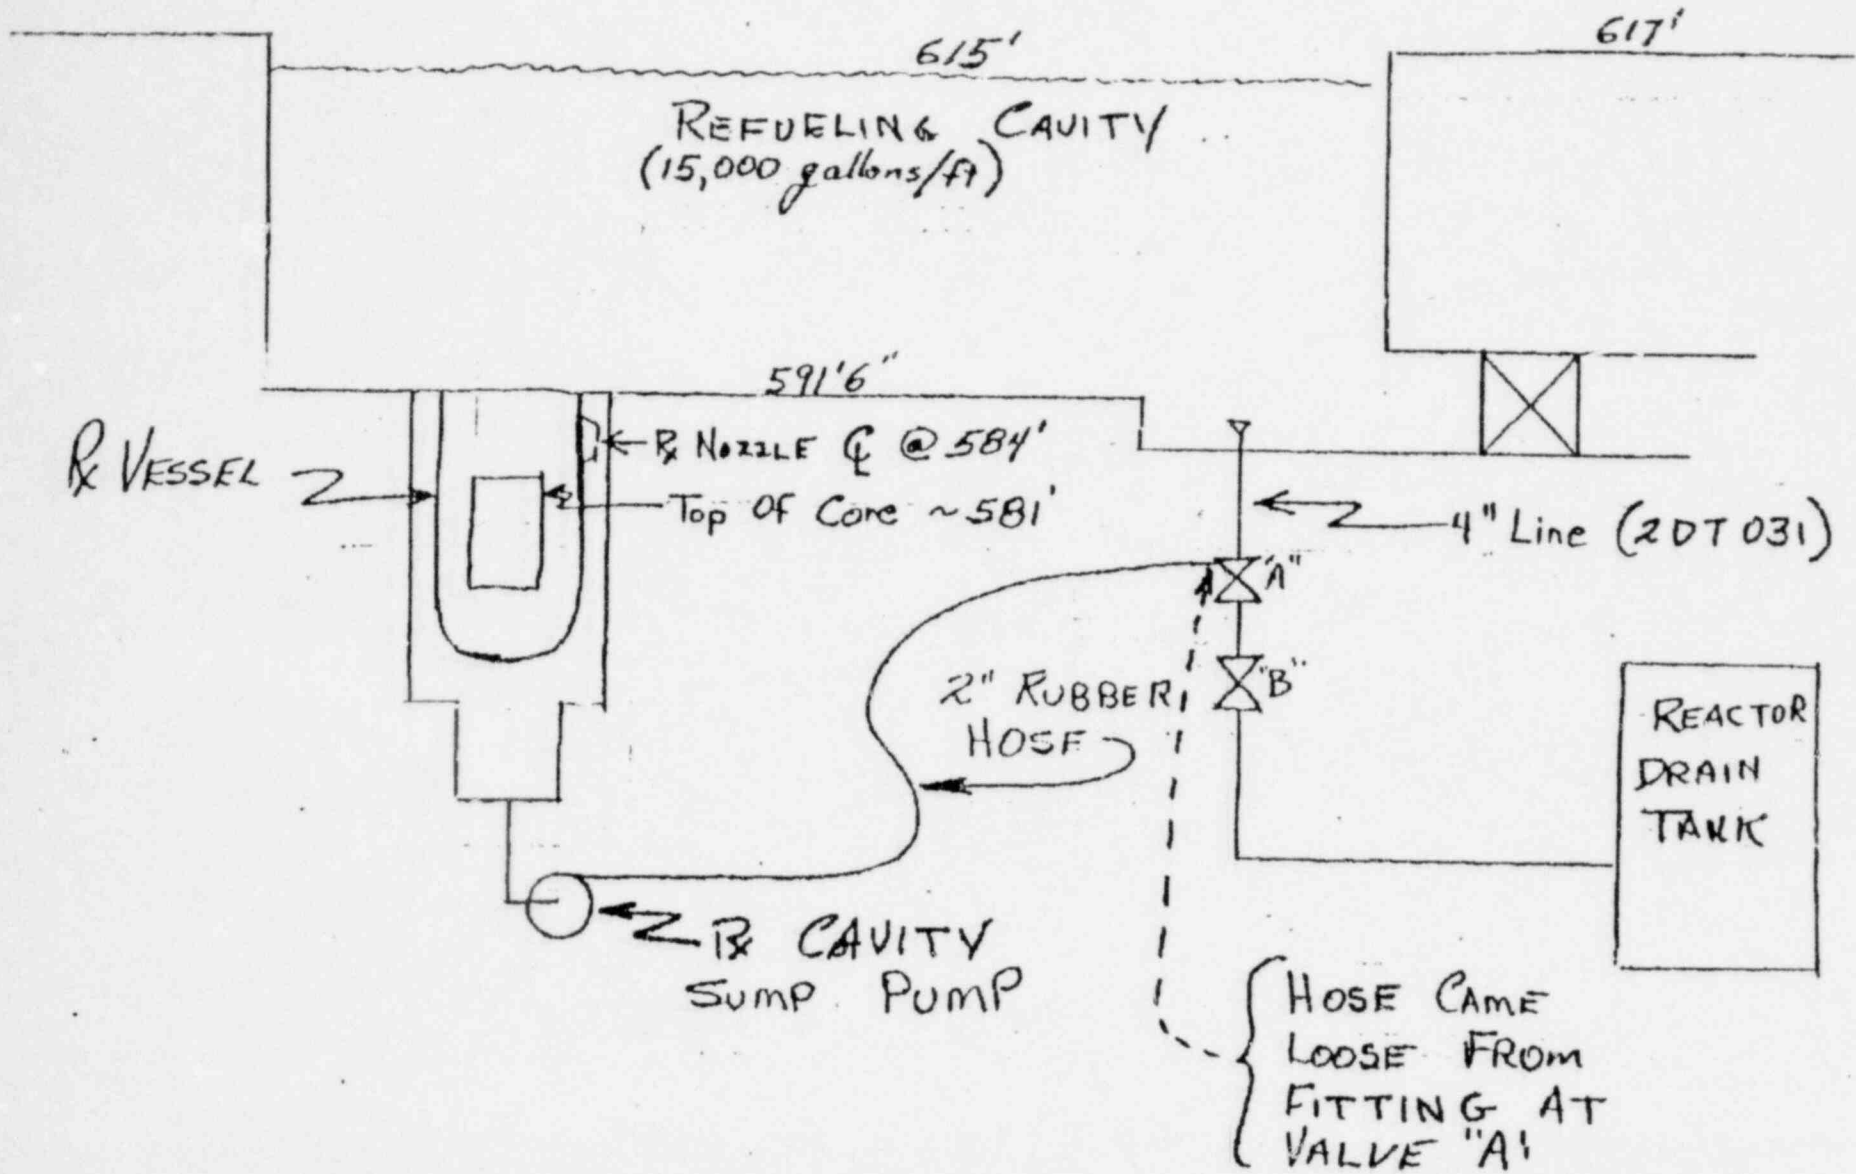 615'
617'
REFUELING CAVITY
(15,000 gallons/ft)
591'6"
Rx VESSEL
Rx NOZZLE ℄ @ 584'
Top Of Core ~581'
4" Line (2DT031)
"A"
2" RUBBER
HOSE
"B"
REACTOR
DRAIN
TANK
Rx CAVITY
SUMP PUMP
HOSE CAME
LOOSE FROM
FITTING AT
VALVE "A"